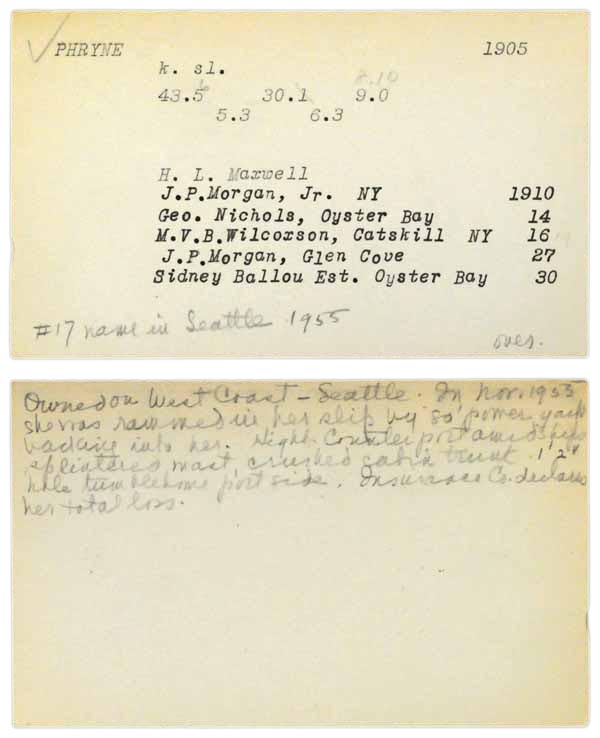 PHRYNE 1905
k. sl.
8.10
43.5 30.1 9.0
5.3 6.3
H. L. Maxwell
J.P.Morgan, Jr. NY 1910
Geo. Nichols, Oyster Bay 14
M.V.B.Wilcoxson, Catskill NY 16
J.P.Morgan, Glen Cove 27
Sidney Ballou Est. Oyster Bay 30
#17 name in Seattle 1955
over.
Owned on West Coast - Seattle. In Nov. 1955
she was rammed in her slip by 80' power yacht
backing into her. High Counter port amidships
splintered mast, crushed cabin trunk 1'2"
hole tumblehome port side. Insurance Co. declares
her total loss.